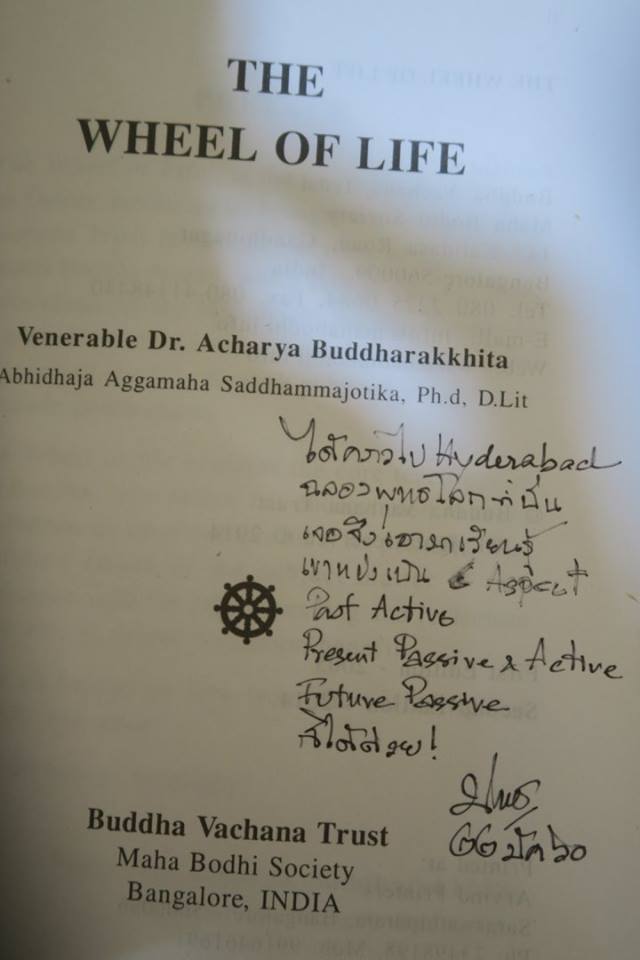 THE
WHEEL OF LIFE
Venerable Dr. Acharya Buddharakkhita
Abhidhaja Aggamaha Saddhammajotika, Ph.d, D.Lit
ได้คราวไป Hyderabad
ฉลองพุทธโลกที่นั่น
เจอจึงเอามาเรียนรู้
เขาแบ่งเป็น Aspect
Past Active
Present Passive & Active
Future Passive
ได้ด้วย!
๖๐
Buddha Vachana Trust
Maha Bodhi Society
Bangalore, INDIA